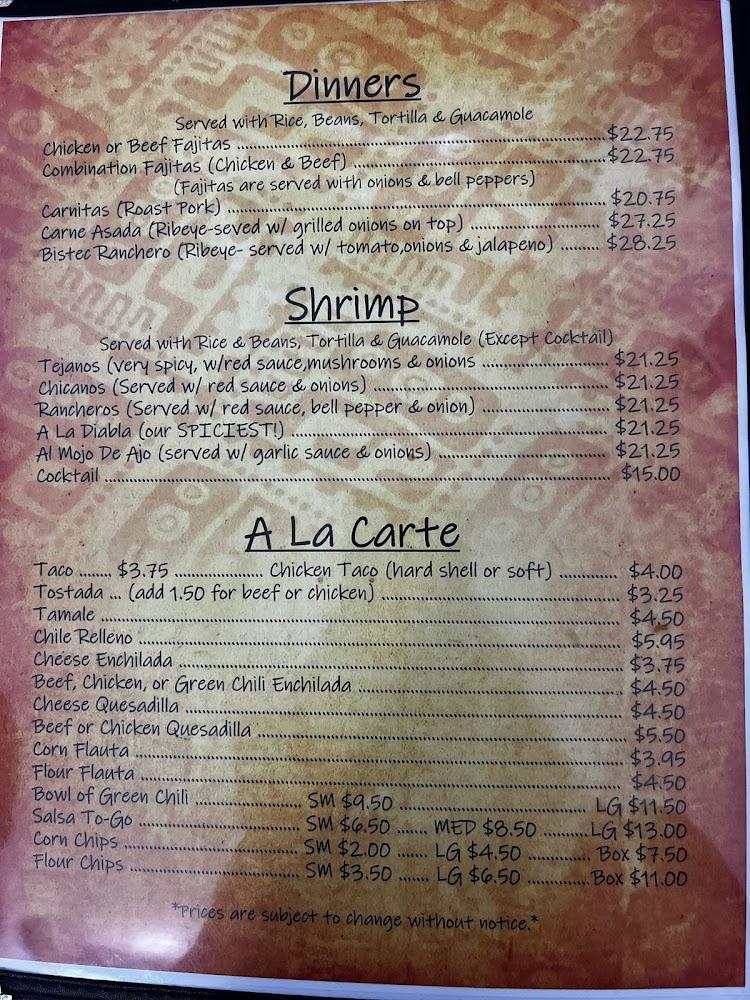 Dinners
Served with Rice, Beans, Tortilla & Guacamole
Chicken or Beef Fajitas ........ $22.75
Combination Fajitas (Chicken & Beef) ........ $22.75
(Fajitas are served with onions & bell peppers)
Carnitas (Roast Pork) ........ $20.75
Carne Asada (Ribeye-seved w/ grilled onions on top) ........ $27.25
Bistec Ranchero (Ribeye- served w/ tomato,onions & jalapeno) ........ $28.25
Shrimp
Served with Rice & Beans, Tortilla & Guacamole (Except Cocktail)
Tejanos (very spicy, w/red sauce,mushrooms & onions ........ $21.25
Chicanos (Served w/ red sauce & onions) ........ $21.25
Rancheros (Served w/ red sauce, bell pepper & onion) ........ $21.25
A La Diabla (our SPICIEST!) ........ $21.25
Al Mojo De Ajo (served w/ garlic sauce & onions) ........ $21.25
Cocktail ........ $15.00
A La Carte
Taco ........ $3.75 ........ Chicken Taco (hard shell or soft) ........ $4.00
Tostada ... (add 1.50 for beef or chicken) ........ $3.25
Tamale ........ $4.50
Chile Relleno ........ $5.95
Cheese Enchilada ........ $3.75
Beef, Chicken, or Green Chili Enchilada ........ $4.50
Cheese Quesadilla ........ $4.50
Beef or Chicken Quesadilla ........ $5.50
Corn Flauta ........ $3.95
Flour Flauta ........ $4.50
Bowl of Green Chili ........ SM $9.50 ........ LG $11.50
Salsa To-Go ........ SM $6.50 ....... MED $8.50 ........ LG $13.00
Corn Chips ........ SM $2.00 ....... LG $4.50 ........ Box $7.50
Flour Chips ........ SM $3.50 ....... LG $6.50 ........ Box $11.00
*Prices are subject to change without notice.*